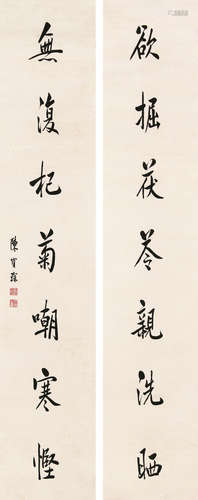 欲掘茯苓親洗晒
無復杞菊嘲寒慳
陳寶琛